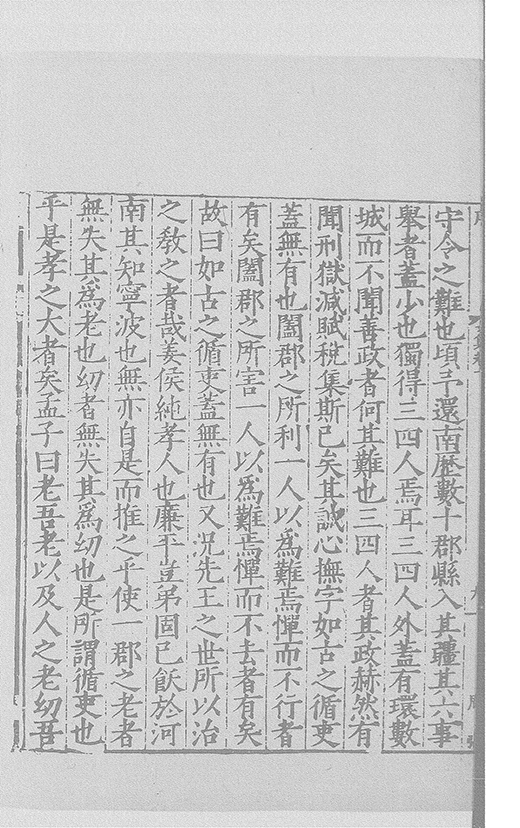 守令之難也頃予還南歷數十郡縣入其疆其六事
舉者蓋少也獨得三四人焉耳三四人外蓋有環數
城而不聞善政者何其難也三四人者其政赫然有
聞刑獄減賦稅集斯已矣其誠心撫字如古之循吏
蓋無有也闔郡之所利一人以爲難焉憚而不行者
有矣闔郡之所害一人以爲難焉憚而不去者有矣
故曰如古之循吏蓋無有也又況先王之世所以治
之敎之者哉姜侯純孝人也廉平豈弟固已飫於河
南其知寧波也無亦自是而推之乎使一郡之老者
無失其爲老也幼者無失其爲幼也是所謂循吏也
乎是孝之大者矣孟子曰老吾老以及人之老幼吾